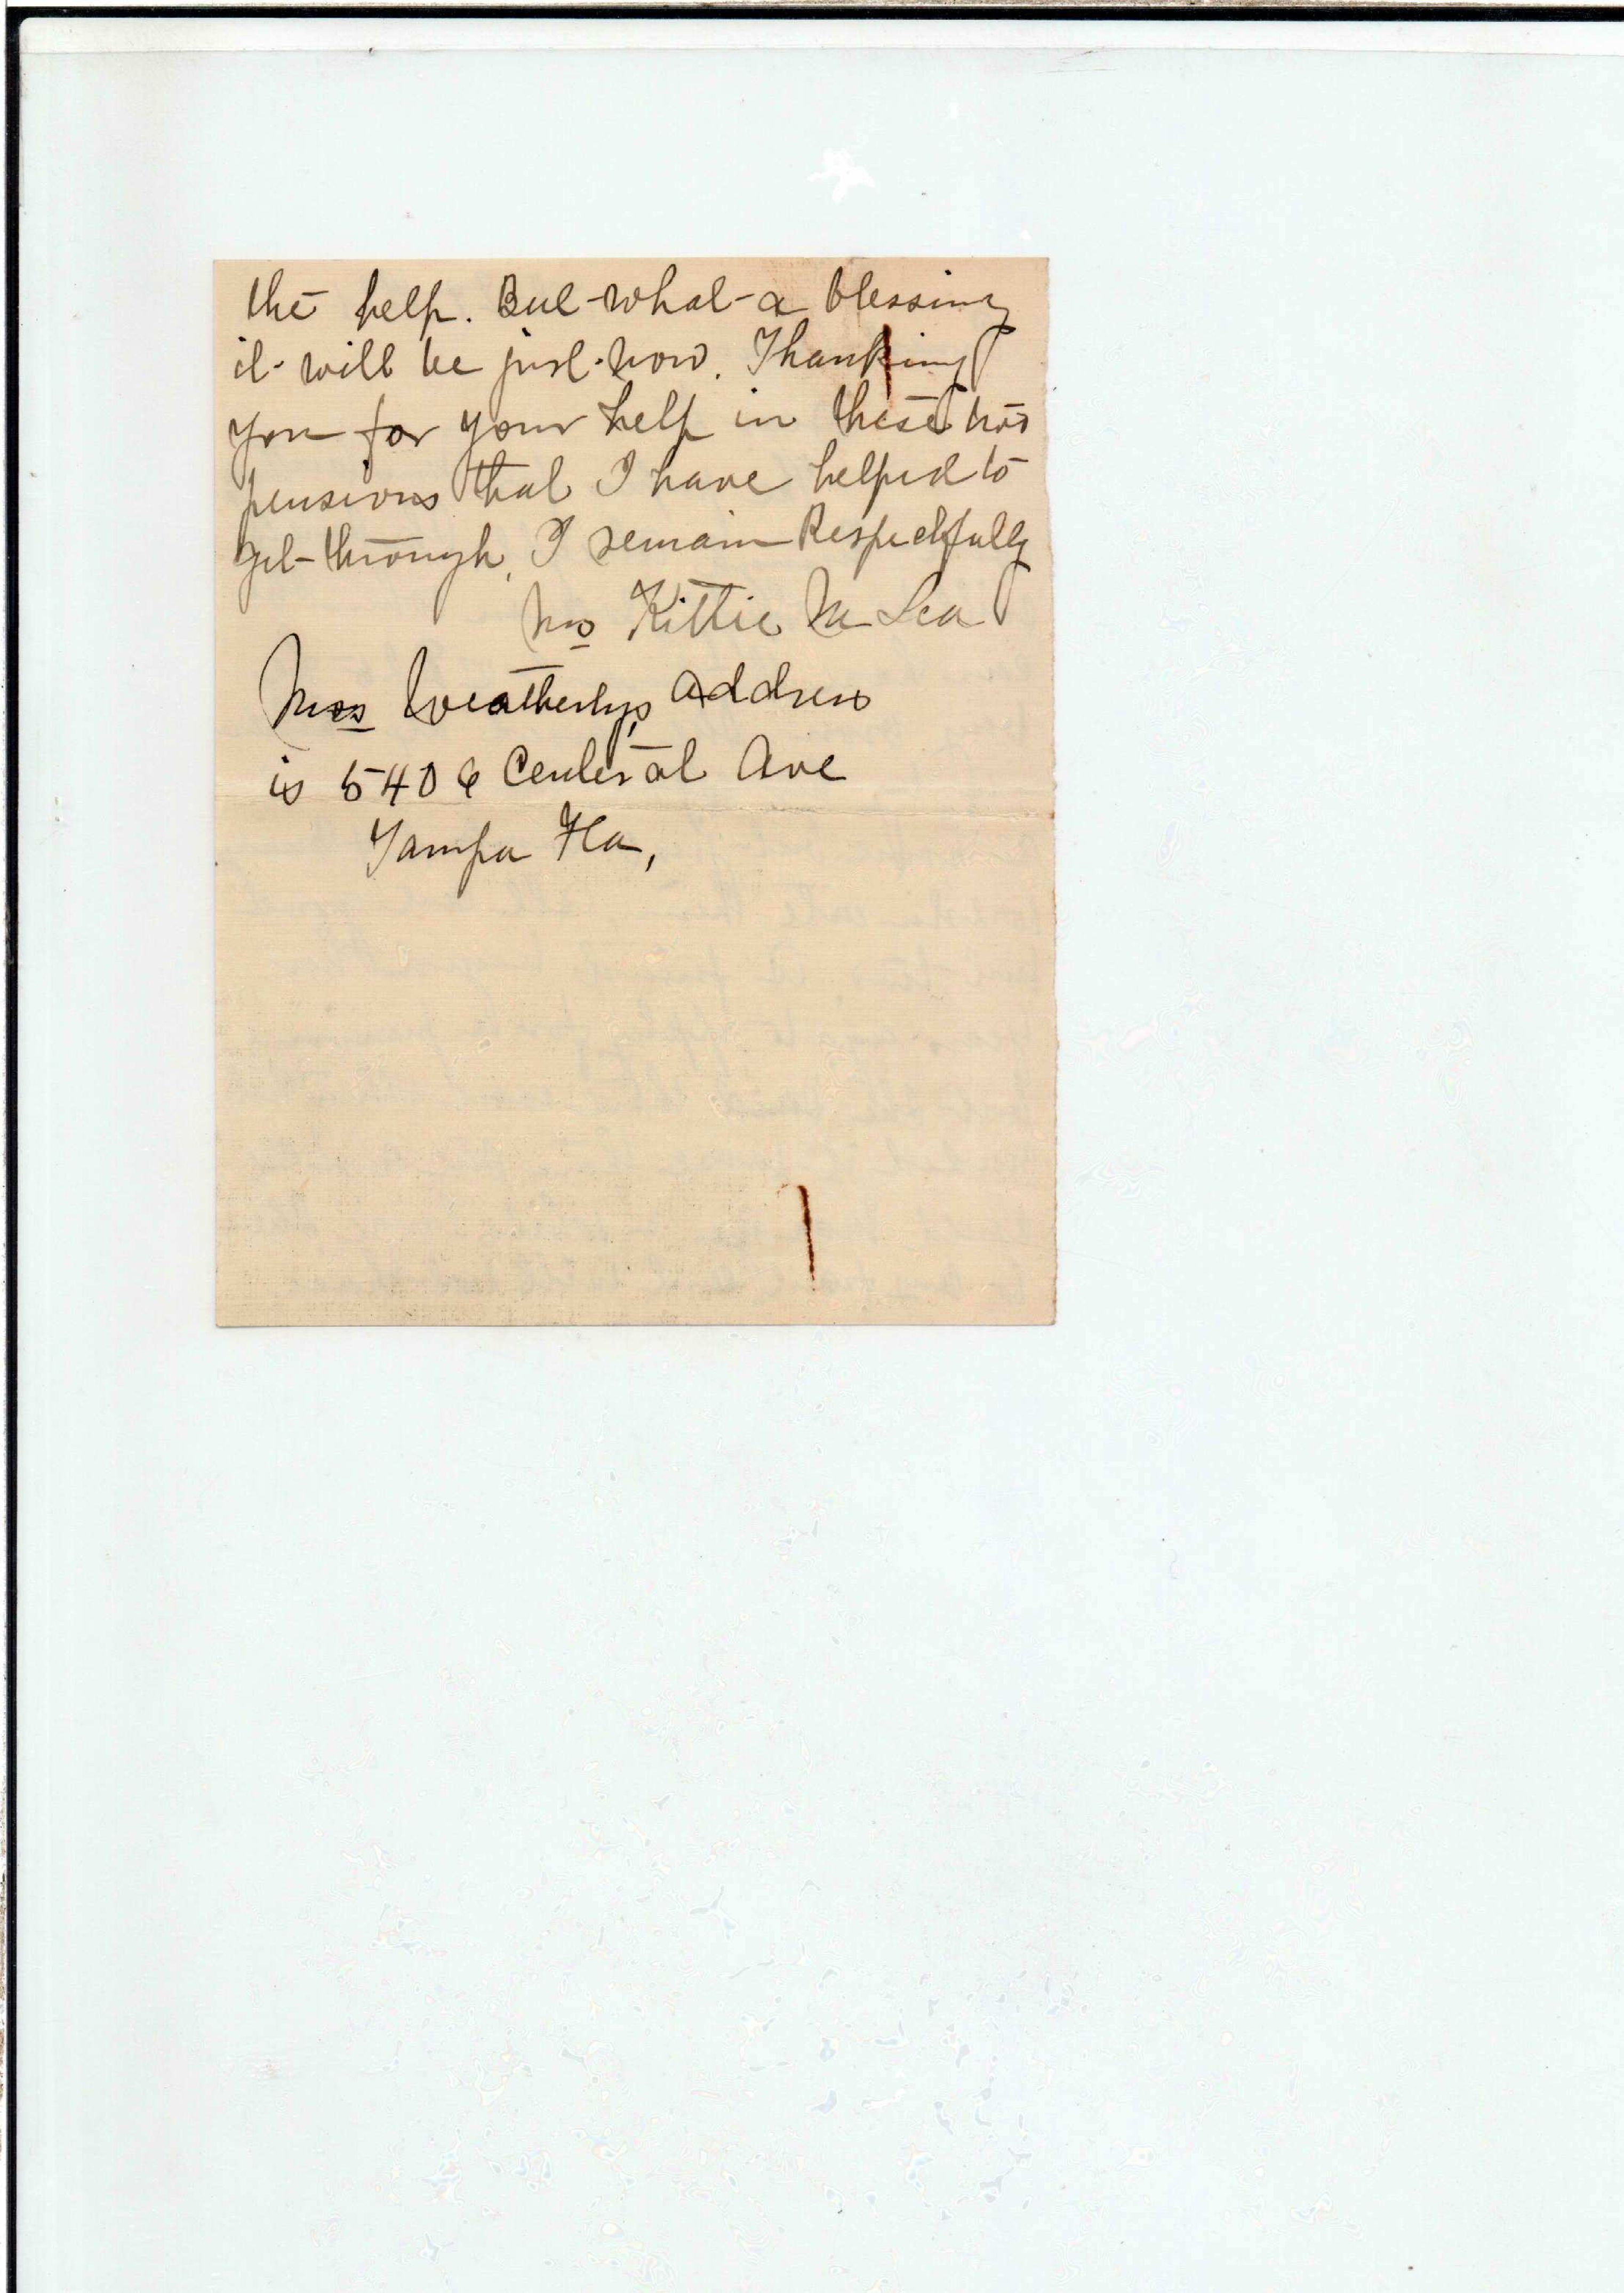 the help. But what a blessing
it will be just now. Thanking
you for your help in these two
pensions that I have helped to
get through, I remain Respectfully
Mrs Kittie M Lea
Mrs Weatherlys address
is 5406 Centeral Ave
Tampa Fla,